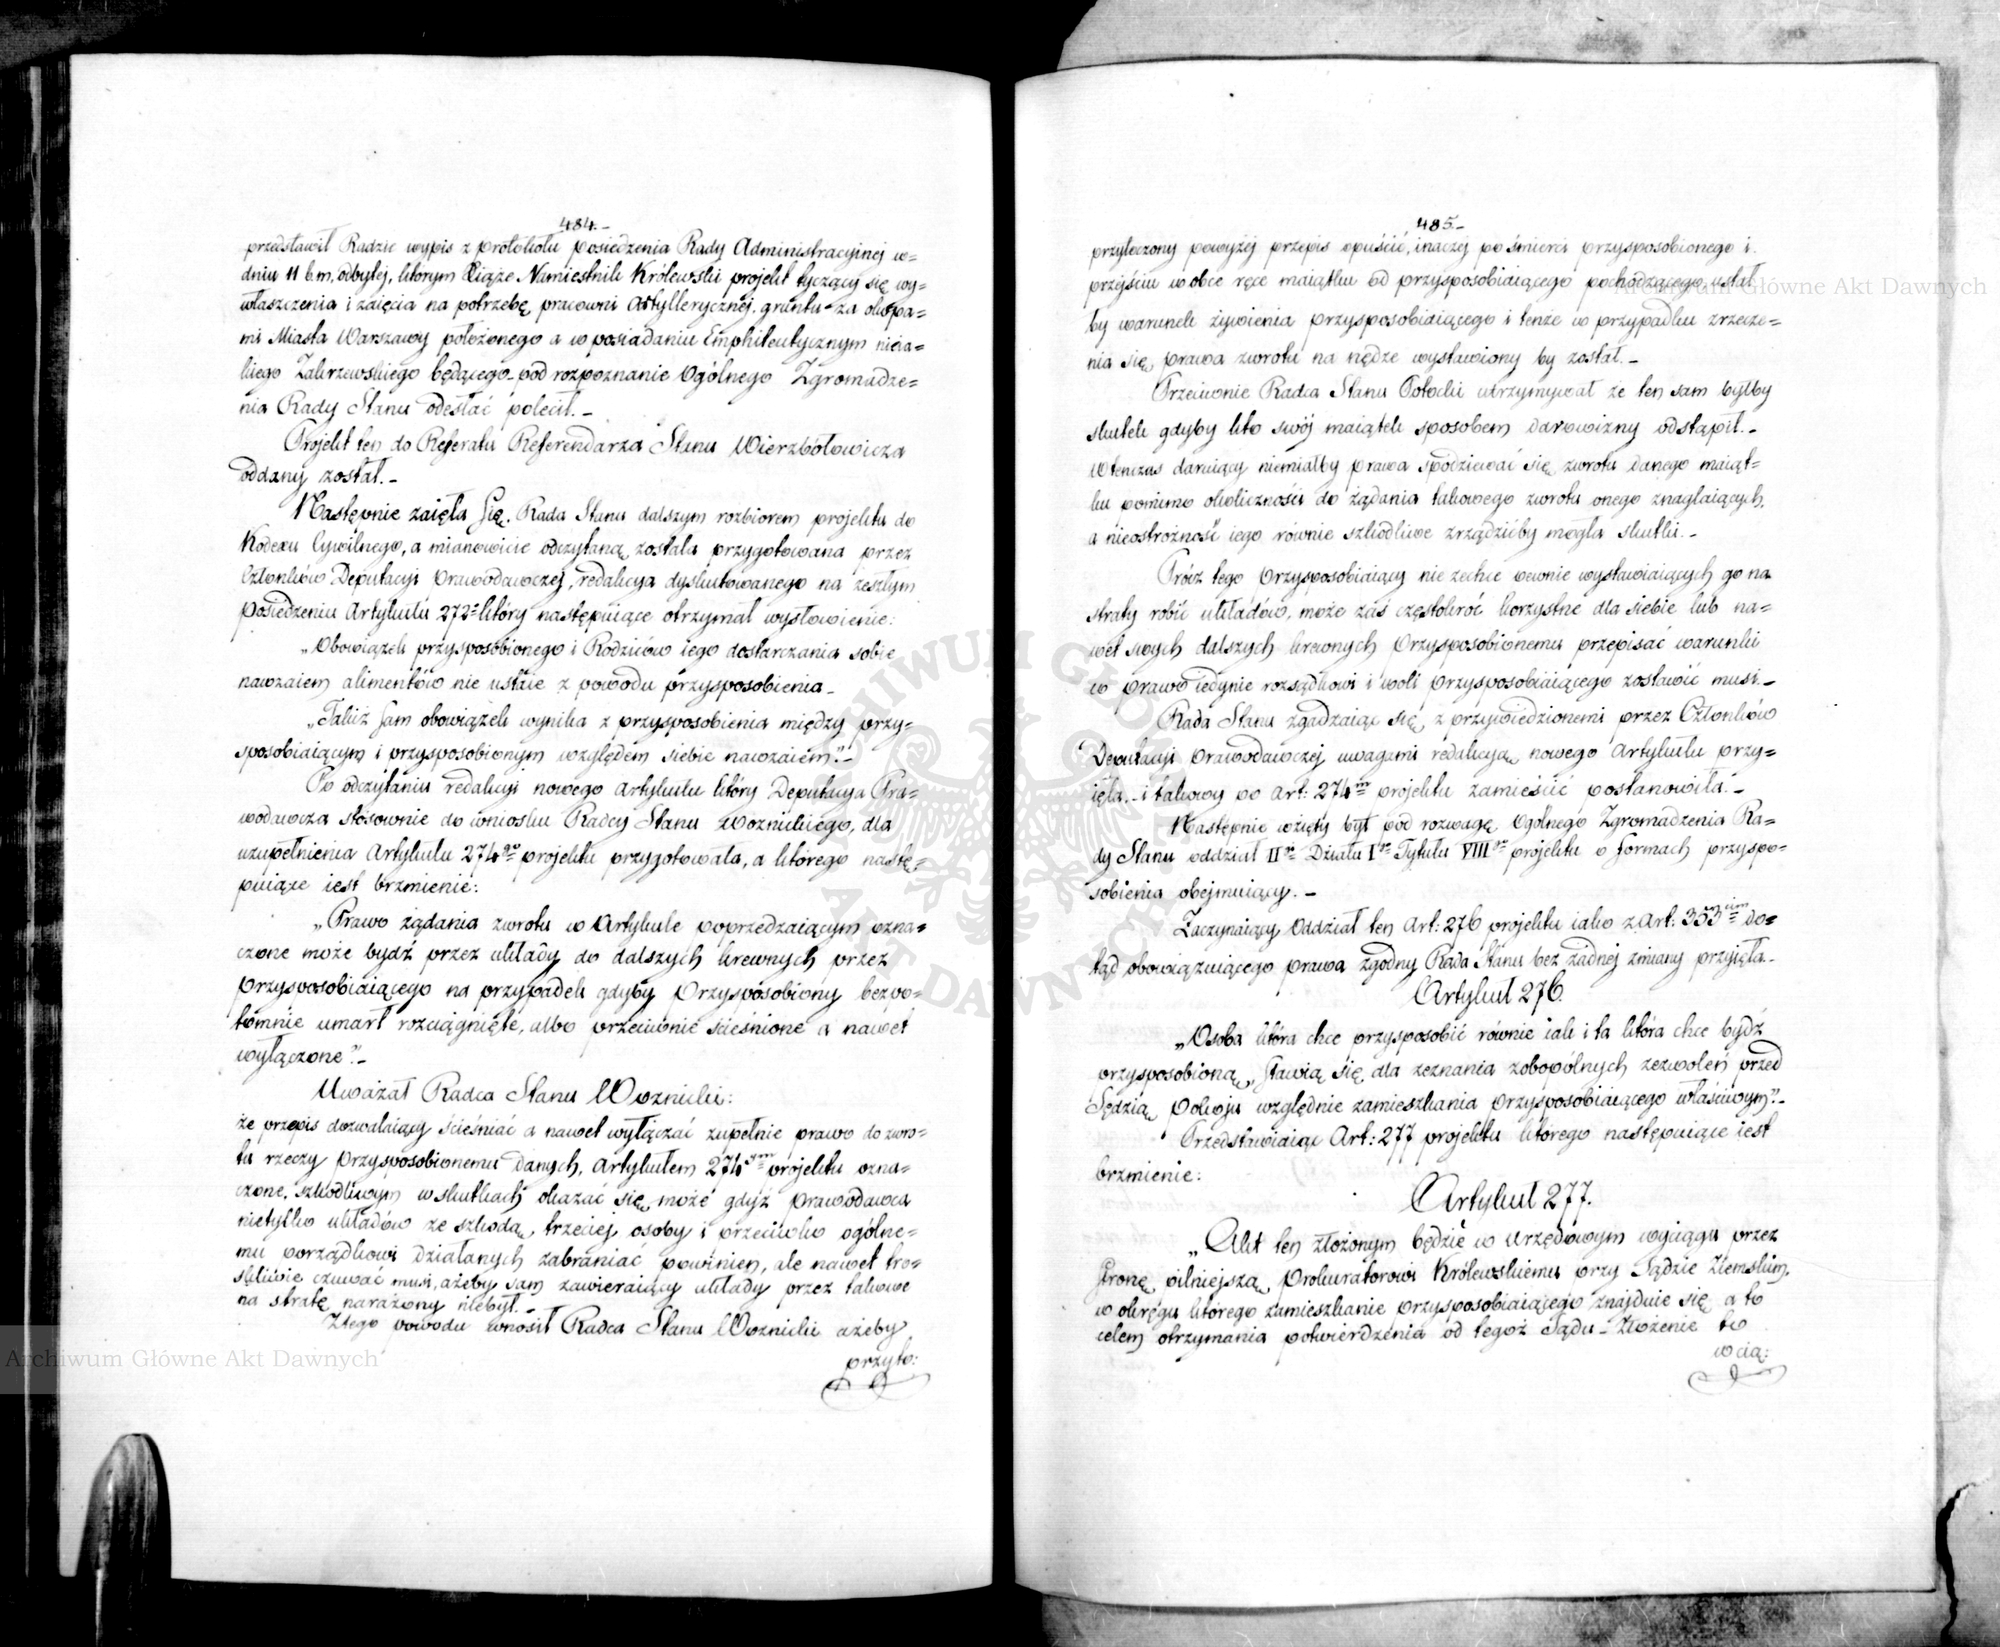 484.-
przedstawił Radzie wypis z protokołu posiedzenia Rady Administracyjnej w=
dniu 11 b.m. odbytej, którym Xiąże Namiestnik Królewski projekt tyczący się wy=
właszczenia i zaięcia na potrzebę pracowni Artyllerycznej, gruntu za okopa=
mi Miasta Warszawy położonego a w posiadaniu Emphiteutycznym nieia=
kiego Zakrzewskiego będącego pod rozpoznanie Ogólnego Zgromadze=
nia Rady Stanu odesłać polecił.-
Projekt ten do Referatu Referendarza Stanu Wierzbołowicza
oddany został.-
Następnie zaięła Się Rada Stanu dalszym rozbiorem projektu do
Kodexu Cywilnego, a mianowicie odczytaną została przygotowana przez
Członków Deputacyi Prawodawczej, redakcya dyskutowanego na zeszłym
Posiedzeniu Artykułu 272= który następuiące otrzymał wysłowienie:
„Obowiązek przysposobionego i Rodziców iego dostarczania sobie
nawzaiem alimentów nie ustaie z powodu przysposobienia.-
„Takiż Sam obowiązek wynika z przysposobienia między przy=
sposobiaiącym i przysposobionym względem siebie nawzaiem".-
Po odczytaniu redakcyi nowego Artykułu który Deputacya Pra=
wodawcza stósownie do wniosku Radcy Stanu Woznickiego, dla
uzupełnienia Artykułu 274go projektu przygotowała, a którego nastę=
puiące iest brzmienie:
„Prawo żądania zwrotu w Artykule poprzedzaiącym ozna=
czone może bydź przez układy do dalszych krewnych przez
Przysposobiaiącego na przypadek gdyby Przysposobiony bezpo=
tomnie umarł rozciągnięte, albo przeciwnie ścieśnione a nawet
wyłączone".-
Uważał Radca Stanu Woznicki:
że przepis dozwalaiący ścieśniać a nawet wyłączać zupełnie prawo do zwro=
tu rzeczy Przysposobionemu danych, Artykułem 274ym projektu ozna=
czone, szkodliwym w skutkach okazać się może gdyż Prawodawca
nietylko układów ze szkodą trzeciej osoby i przeciwko ogólne=
mu porządkowi działanych zabraniać powinien, ale nawet tro=
skliwie czuwać musi, ażeby sam zawieraiący układy przez takowe
na stratę narażony niebył.-
Ztego powodu wnosił Radca Stanu Woznicki ażeby
przyto:
485.-
przytoczony powyżej przepis opuścić, inaczej po śmierci przysposobionego i
przejściu w obce ręce maiątku od przysposobiaiącego pochodzącego, ustał
by warunek żywienia przysposobiaiącego i tenże w przypadku zrzecze=
nia się prawa zwrotu na nędze wystawiony by został.-
Przeciwnie Radca Stanu Potocki utrzymywał że ten sam byłby
skutek gdyby kto swój maiątek sposobem darowizny odstąpił.-
Wtenczas daruiący niemiałby prawa spodziewać się zwrotu danego maiąt=
ku pomimo okoliczności do żądania takowego zwrotu onego znaglaiących,
a nieostrożność iego równie szkodliwe zrządzićby mogła skutki.-
Prócz tego Przysposobiaiący nie zechce pewnie wystawiaiących go na
straty robić układów, może zaś częstokroć korzystne dla siebie lub na=
wet swych dalszych krewnych Przysposobionemu przepisać warunki
co prawo iedynie rozsądkowi i woli Przysposobiaiącego zostawić musi.-
Rada Stanu zgadzaiąc się z przywiedzionemi przez Członków
Deputacyi Prawodawczej uwagami redakcyą nowego Artykułu przy=
ięła.- i takowy po Art: 274m projektu zamieścić postanowiła.-
Następnie wzięty był pod rozwagę Ogólnego Zgromadzenia Ra=
dy Stanu oddział IIgi Działu Igo Tytułu VIIIgo projektu o formach przyspo=
sobienia obejmuiący.-
Zaczynaiący Oddział ten Art: 276 projektu iako z Art: 353cim do=
tąd obowiązuiącego prawa zgodny Rada Stanu bez żadnej zmiany przyięła.-
Artykuł 276.
„Osoba która chce przysposobić równie iak i ta która chce bydź
przysposobioną, Stawią się dla zeznania zobopólnych zezwoleń przed
Sędzią Pokoju względnie zamieszkania Przysposobiaiącego właściwym".-
Przedstawiaiąc Art: 277 projektu którego następuiące iest
brzmienie:
Artykuł 277.
„Akt ten złożonym będzie w urzędowym wyciągu przez
Stronę pilniejszą Prokuratorowi Królewskiemu przy Sądzie Ziemskim,
w okręgu którego zamieszkanie przysposobiaiącego znajduie się a to
celem otrzymania potwierdzenia od tegoż Sądu - Złożenie to
w cią:
Archiwum Główne Akt Dawnych
Archiwum Główne Akt Dawnych
ARCHIWUM GŁÓWNE AKT DAWNYCH